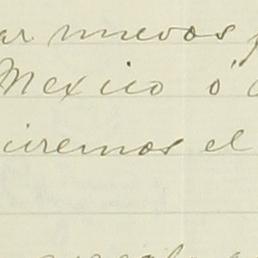 ar nuevos
Mexico ó
uiremos el